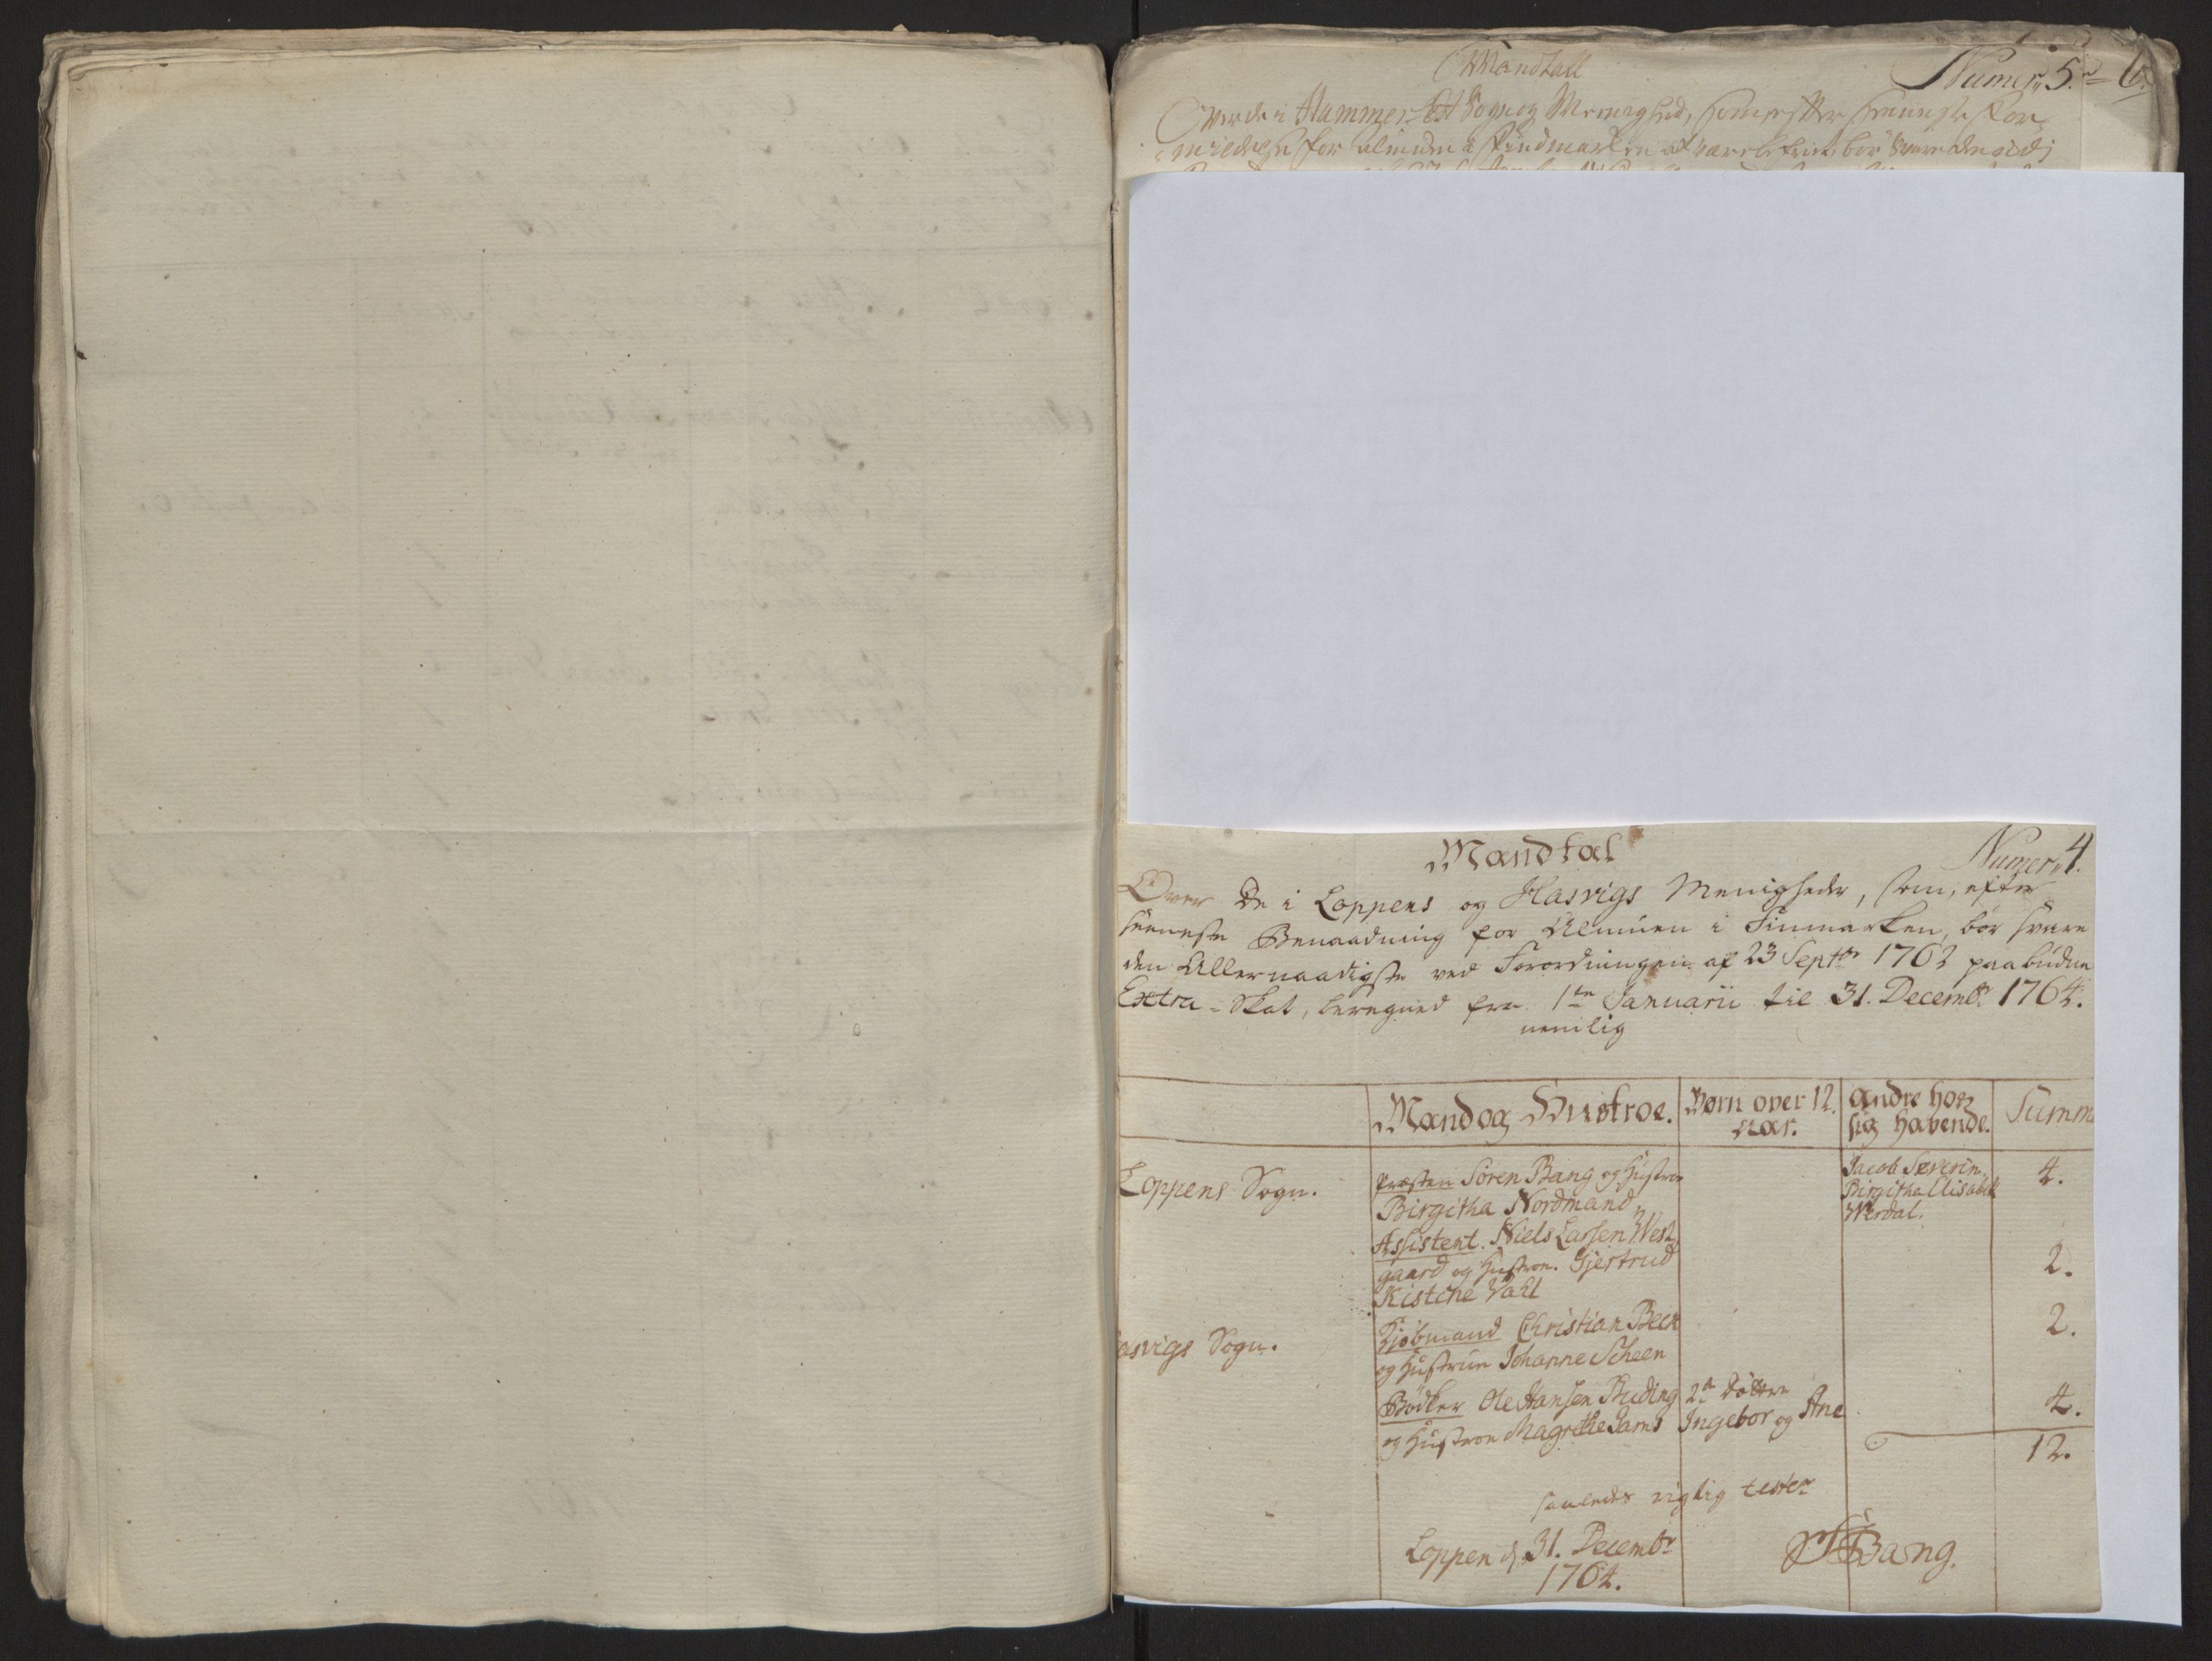 Mandtall
Numer, 5.
Over de i Hammerfest Sogn og Menighed, som efter seeneste
for Almuen i Findmarken at være befriet, bør svare den aldj
Mandtal
Numer, 4.
Over De i Loppens og Hasvigs Menigheder, som, efter
seeneste Benaadning for Almúen i Finmarken, bør svare
den Allernaadigste ved Forordningen af 23 Septbr 1762 paabudne
Extra-Skat, beregned fra 1te Januarii til 31. Decembr 1764.
nemlig
Mand og Hustroe.
Børn over 12. Aar.
andre hos sig havende.
Summ
Loppens Sogn.
Præsten Søren Bang og Hustroe
Birgitha Nordmand,
Jacob Severin,
Birgitha Elisabeth
Werdal.
4.
Assistent. Niels Larsen West
gaard og Hustroe. Gjertrud
Kistine Vahl
2.
asvigs Sogn.
Kjøbmand Christian Beck
og Hustrúe Johanne Scheen
2.
Bødker Ole Hansen Buding
og Hustroe Magrethe Jams
2de Døttre
Ingebor og Ane
4.
12.
saaledes rigtig tester
Loppen d. 31. Decembr
1764.
SBang.